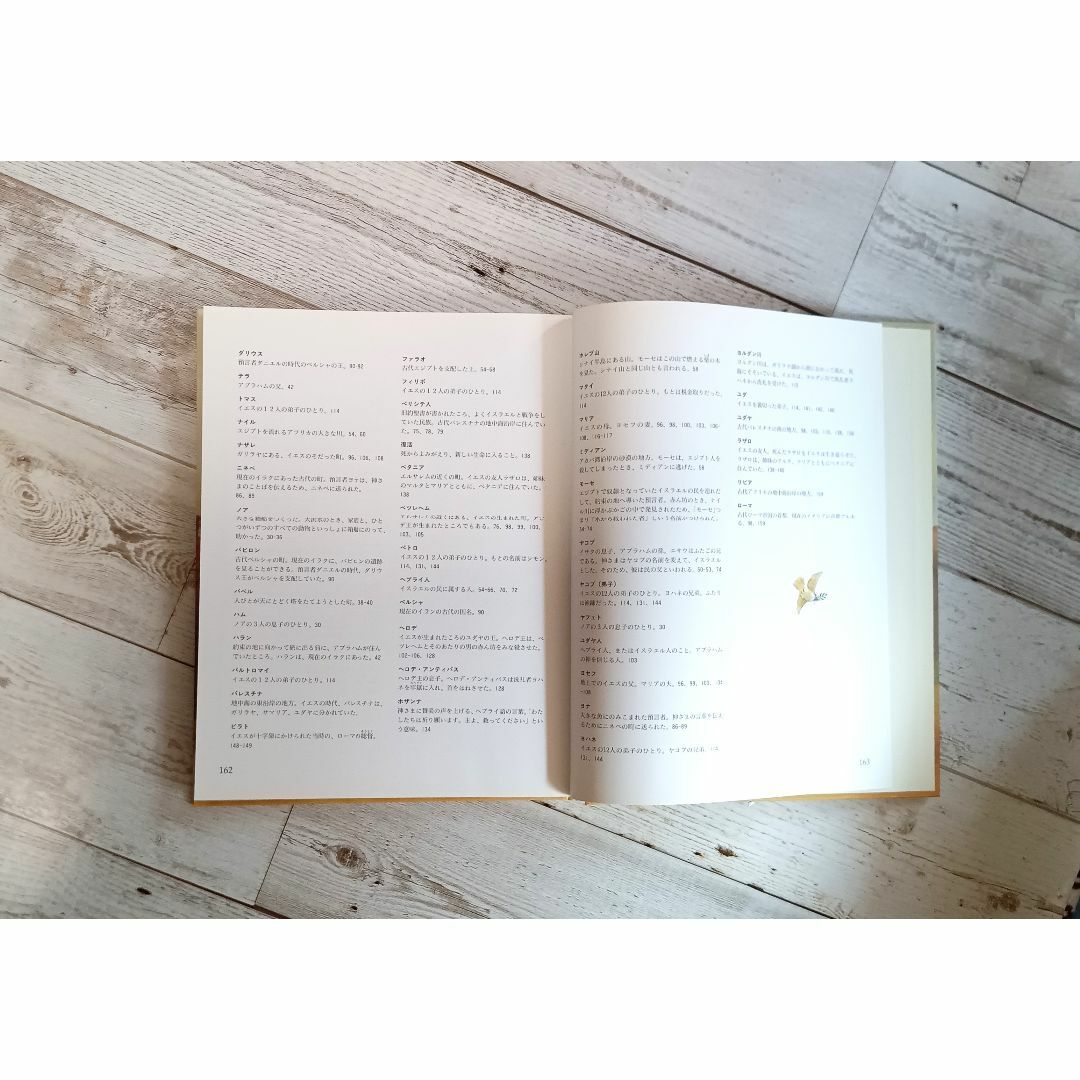 ダリウス
預言者ダニエルの時代のペルシャの王。90-92
テラ
アブラハムの父。42
トマス
イエスの12人の弟子のひとり。114
ナイル
エジプトを流れるアフリカの大きな川。54, 60
ナザレ
ガリラヤにある、イエスのそだった町。96, 106, 108
ニネベ
現在のイラクにあった古代の町。預言者ヨナは、神さ
まのことばを伝えるため、ニネベに送られた。
86, 89
ノア
大きな箱船をつくった。大洪水のとき、家族と、ひと
つがいずつのすべての動物といっしょに箱船にのって、
助かった。30-36
バビロン
古代ペルシャの町。現在のイラクに、バビロンの遺跡
を見ることができる。預言者ダニエルの時代、ダリウ
ス王がペルシャを支配していた。90
バベル
人びとが天にとどく塔をたてようとした町。38-40
ハム
ノアの3人の息子のひとり。30
ハラン
約束の地に向かって砂に出る前に、アブラハムが住ん
でいたところ。ハランは、現在のイラクにあった。42
バルトロマイ
イエスの12人の弟子のひとり。114
パレスチナ
地中海の東沿岸の地方。イエスの時代、パレスチナは、
ガリラヤ、サマリア、ユダヤに分かれていた。
ピラト
イエスが十字架にかけられた当時の、ローマの総督。
148-149
162
ファラオ
古代エジプトを支配した王。54-68
フィリポ
イエスの12人の弟子のひとり。114
ペリシテ人
旧約聖書が書かれたころ、よくイスラエルと戦争をし
ていた民族。古代パレスチナの地中海沿岸に住んでい
た。75, 78, 79
復活
死からよみがえり、新しい生命に入ること。138
ベタニア
エルサレムの近くの町。イエスの友人ラザロは、姉妹
のマルタとマリアとともに、ベタニアに住んでいた。
138
ベツレヘム
エルサレムの近くにある、イエスの生まれた町。ダビ
デ王が生まれたところでもある。76, 98, 99, 100,
103, 105
ペトロ
イエスの12人の弟子のひとり。もとの名前はシモン。
114, 131, 144
ヘブライ人
イスラエルの民に属する人。54-66, 70, 72
ペルシャ
現在のイランの古代の国名。90
ヘロデ
イエスが生まれたころのユダヤの王。ヘロデ王は、ベ
ツレヘムとそのあたりの男の赤ん坊をみな殺させた。
102-106, 128
ヘロデ・アンティパス
ヘロデ王の息子。ヘロデ・アンティパスは洗礼者ヨハ
ネを牢獄に入れ、首をはねさせた。128
ホザンナ
神さまに賛美の声を上げる、ヘブライ語の言葉。「わた
したちは祈り願います。主よ、救ってください」とい
う意味。134
ホレブ山
シナイ半島にある山。モーセはこの山で燃える柴の木
を見た。シナイ山と同じ山とも言われる。58
マタイ
イエスの12人の弟子のひとり。もとは税金取りだった。
114
マリア
イエスの母。ヨセフの妻。96, 98, 100, 103, 106-
108, 116-117
ミディアン
アカバ湾沿岸の砂漠の地方。モーセは、エジプト人を
殺してしまったとき、ミディアンに逃げた。58
モーセ
エジプトで奴隷となっていたイスラエルの民を連れだ
して、約束の地へ導いた預言者。赤ん坊のとき、ナイ
ル川に浮かぶかごの中で発見されたため、「モーセ」つ
まり「水から救いわれた者」という名前がつけられた。
54-74
ヤコブ
イサクの息子、アブラハムの孫。エサウはふたごの兄で
ある。神さまはヤコブの名前を変えて、イスラエル
とした。そのため、彼は民の父といわれる。50-53, 74
ヤコブ（弟子）
イエスの12人の弟子のひとり。ヨハネの兄弟。ふたり
は漁師だった。114, 131, 144
ヤフェト
ノアの3人の息子のひとり。30
ユダヤ人
ヘブライ人、またはイスラエル人のこと。アブラハム
の神を信じる人。103
ヨセフ
地上でのイエスの父。マリアの夫。96, 99, 103,
-108
ヨナ
大きな魚にのみこまれた預言者。神さまの言葉を伝え
るためにニネベの町に送られた。86-89
ヨハネ
イエスの12人の弟子のひとり。ヤコブの兄弟。114,
131, 144
ヨルダン川
ユダ
イエスを裏切った弟子。114,
ユダヤ
ラザロ
リビア
古代アフリカの地中海沿岸の地方。159
ローマ
163